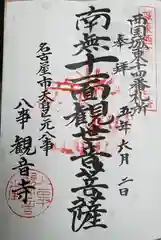 西国城東四番札所
奉拝
五年六月二日
南無十一面観世音菩薩
名古屋市天白区元八事
八事観音寺